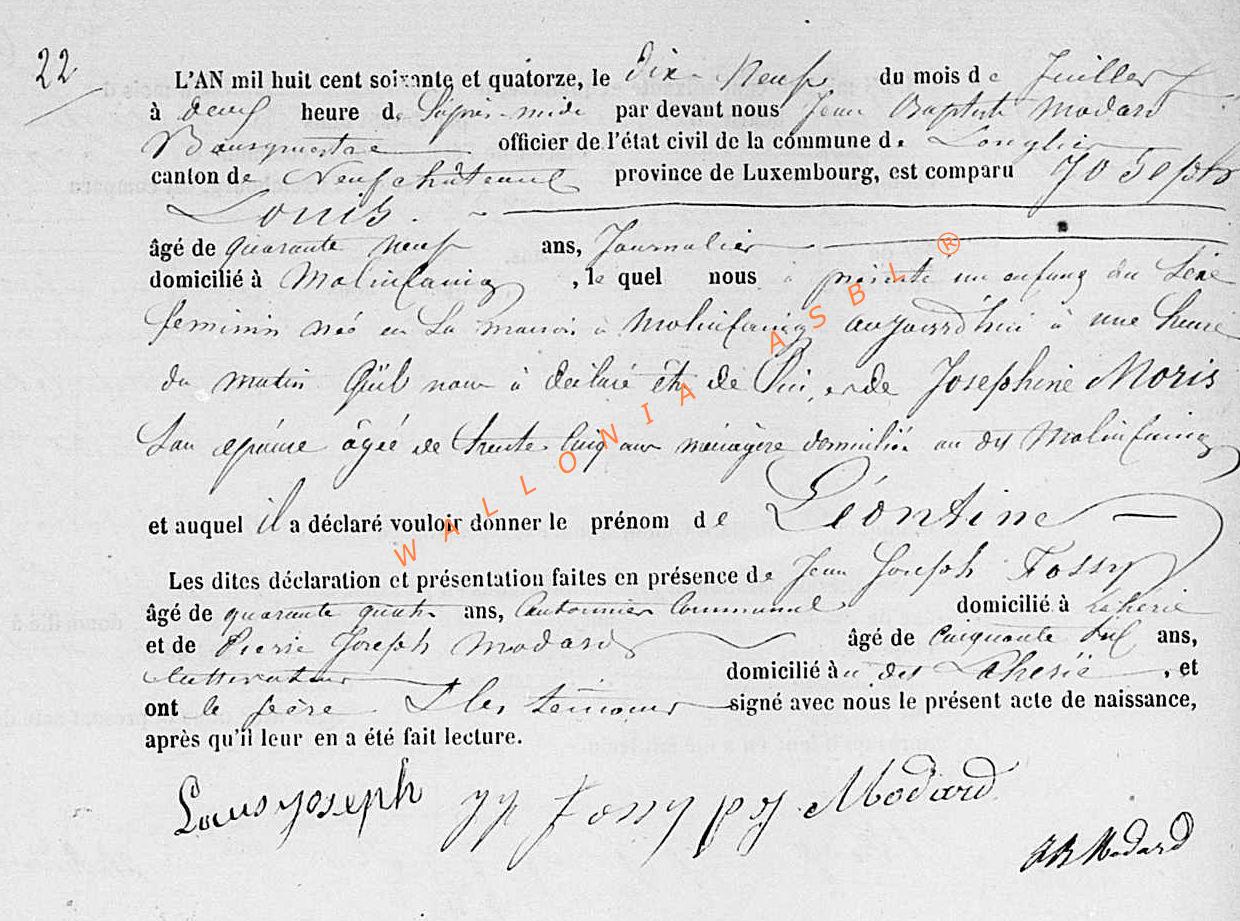 22
L'AN mil huit cent soixante et quatorze, le dix-Neuf du mois de Juillet
à deux heure de L'après-midi par devant nous Jean Baptiste Modard
Bourgmestre officier de l'état civil de la commune de Longlier
canton de Neufchâteau province de Luxembourg, est comparu Joseph
Louis
âgé de quarante neuf ans, Journalier
domicilié à Molinfaing, le quel nous à présenté un enfant du Sexe
feminin née en Sa maison à Molinfaing aujourd'hui à une heure
du matin Qu'il nous à déclaré être de Lui, et de Josephine Moris
Son épouse âgée de trente Cinq ans ménagère domiciliée au dit Molinfaing
et auquel il a déclaré vouloir donner le prénom de Léontine
Les dites déclaration et présentation faites en présence de Jean Joseph Fossy
âgé de quarante quatre ans, Cantonnier Communal domicilié à Laherie
et de Pierre Joseph Modard âgé de Cinquante ans,
Cultivateur domicilié à u dit Laherië, et
ont le père & les témoins signé avec nous le présent acte de naissance,
après qu'il leur en a été fait lecture.
Louis Joseph JJ Fossy p j Modard
JB Modard
WALLONIA ASBL ®